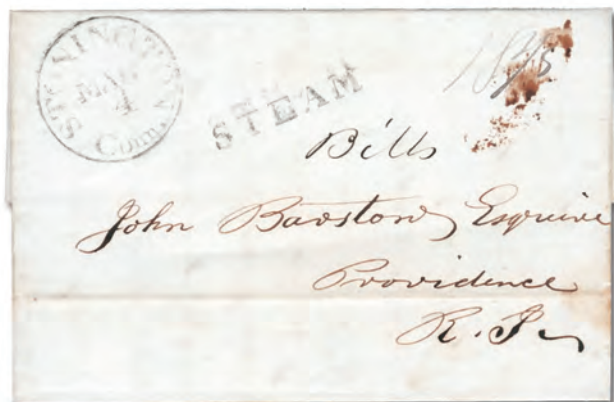 STONINGTON
MAR
4
Conn.
STEAM
Bills
John Barstow, Esquire
Providence
R. I.